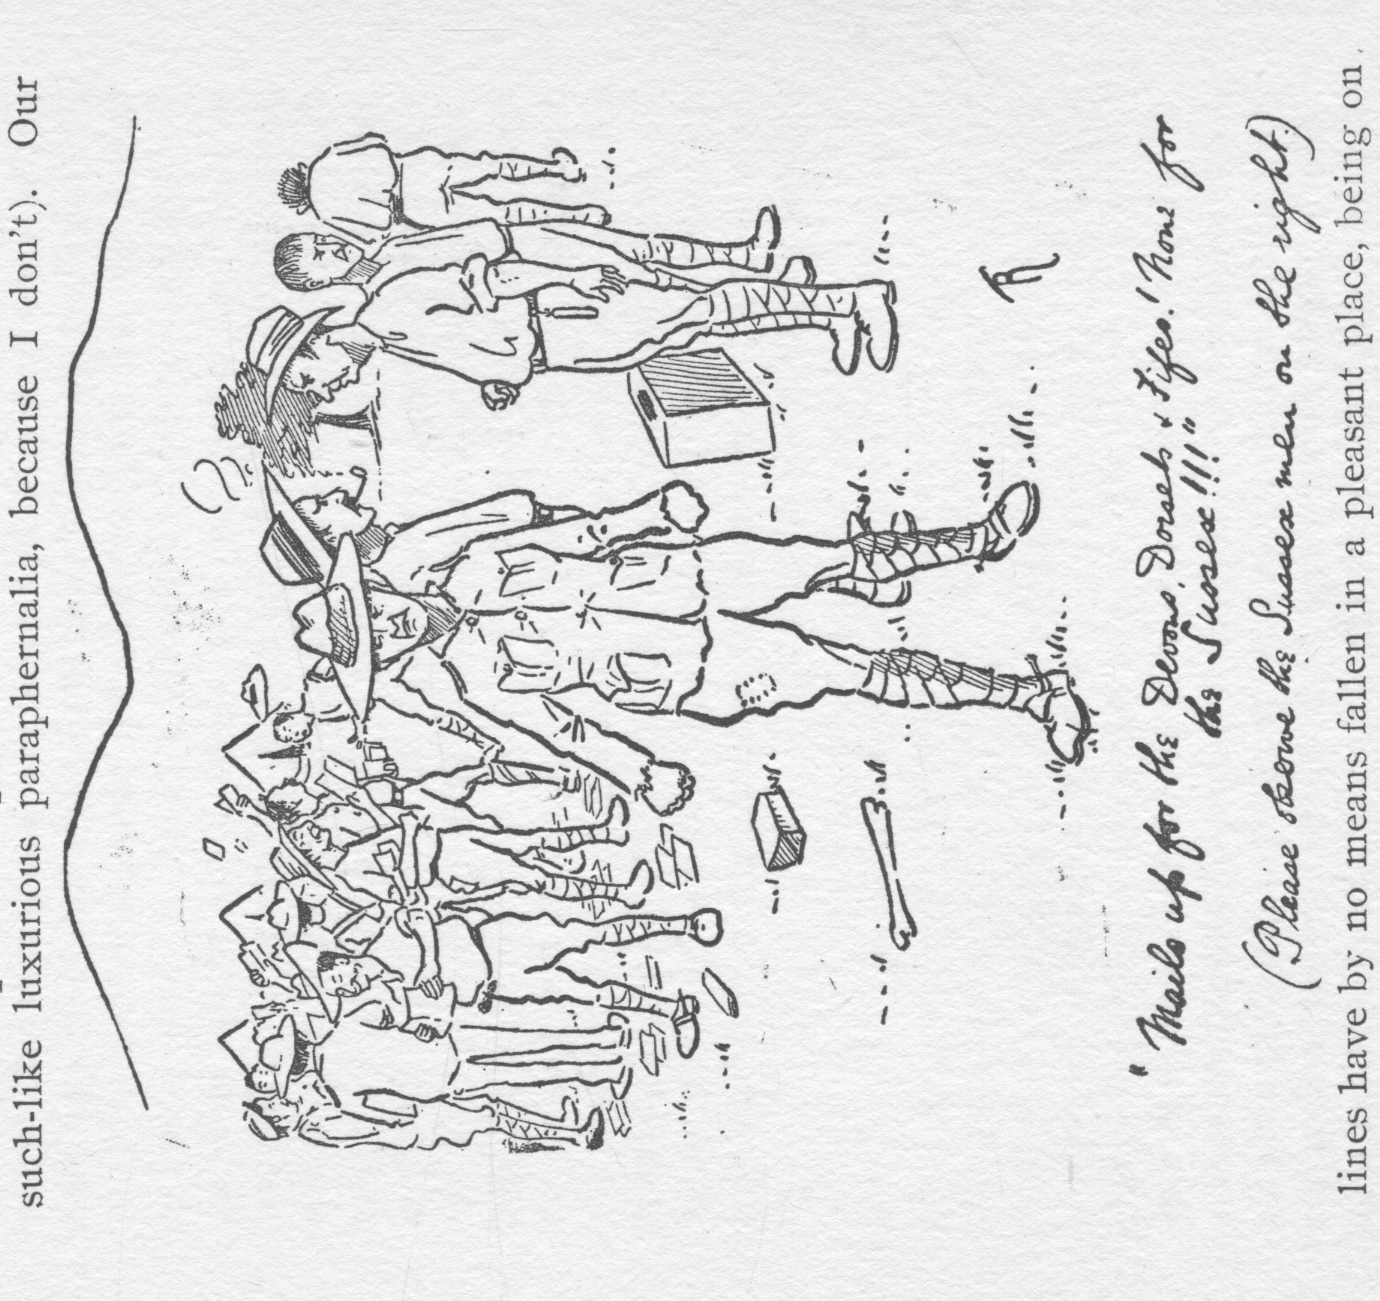 such-like luxurious paraphernalia, because I don't). Our
"Mails up for the Devons, Dorsets & Fifes! None for
the Sussex!!!"
(Please observe the Sussex men on the right.)
lines have by no means fallen in a pleasant place, being on